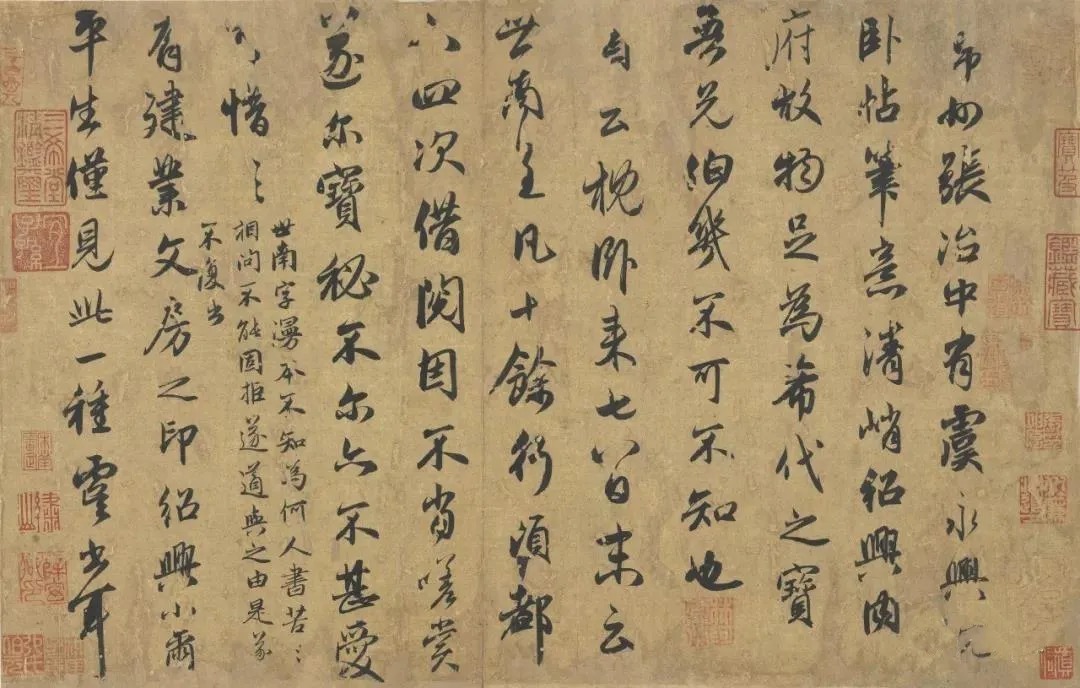 張治中有虞永興
卧帖筆意清峭紹興内
府故物足為希代之寶
無兄伯幾不可不知也
自云枕卧来七八日末云
世南呈凡十餘行須都
四次借閲因不肯嗟賞
遂尔寶秘不尔亦不甚愛
惜〻
世南字漫本不知為何人書苦〻
相問不能固拒遂道與之由是遂
不復出
有建業文房之印紹興小爾
平生僅見此一種虞書耳